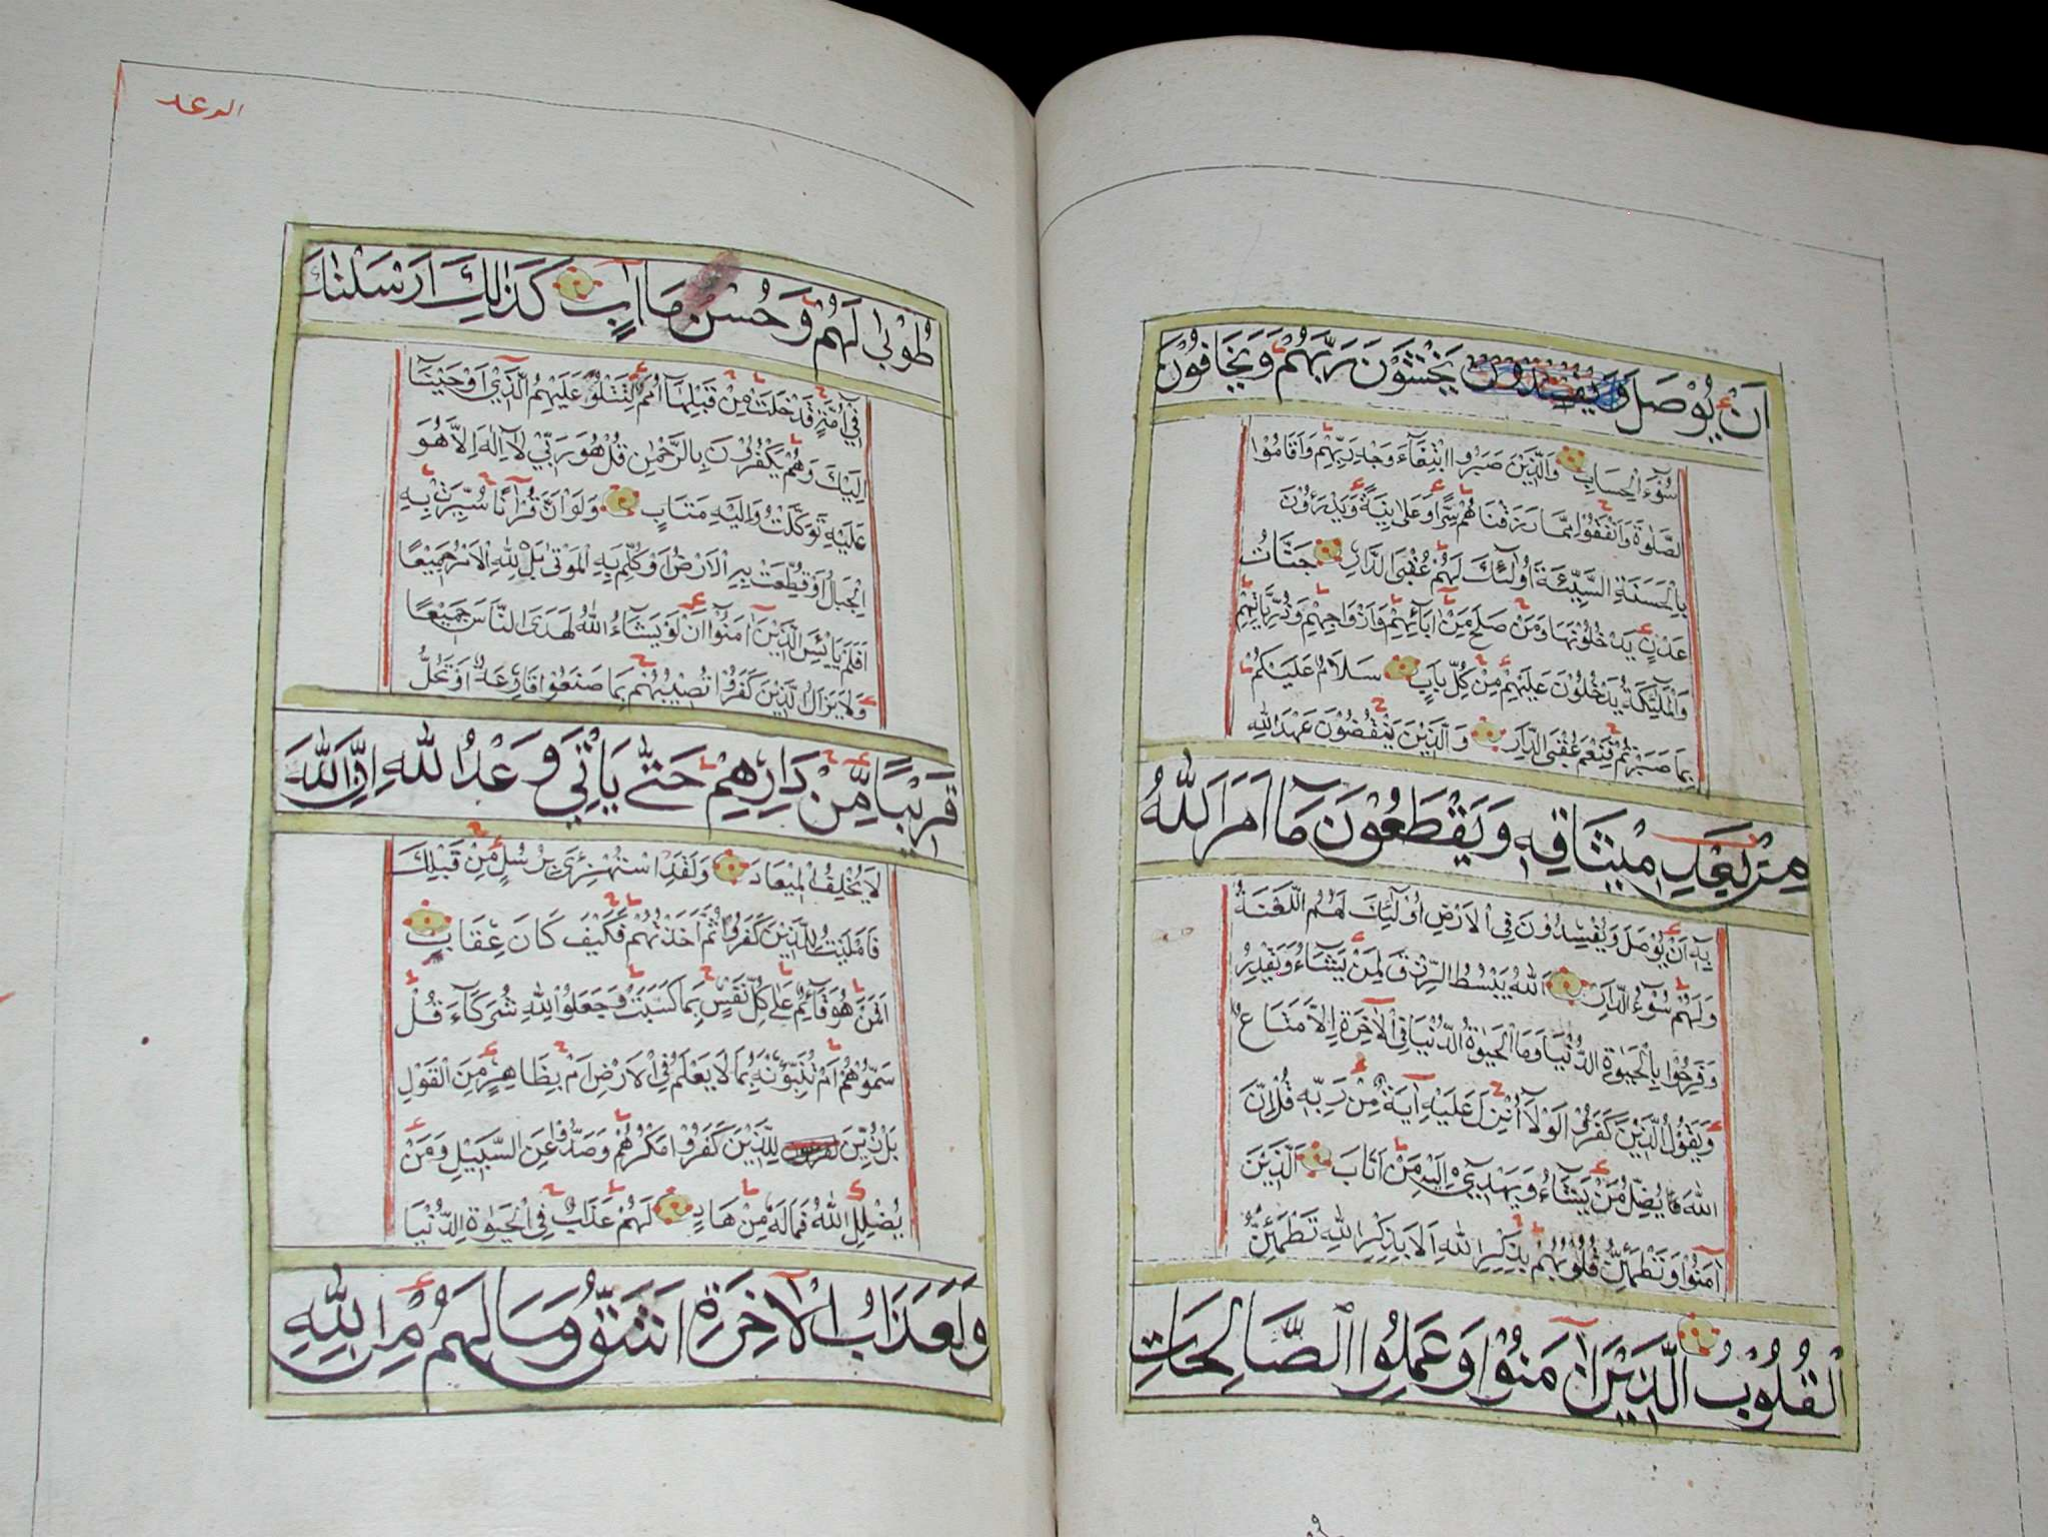 اَنْ يُوْصَلَ وَيَخْشَوْنَ رَبَّهُمْ وَيَخَافُوْنَ
سُوْٓءَ الْحِسَابِ وَالَّذِيْنَ صَبَرُوا ابْتِغَآءَ وَجْهِ رَبِّهِمْ وَاَقَامُوْا
الصَّلٰوةَ وَاَنْفَقُوْا مِمَّا رَزَقْنَاهُمْ سِرًّا وَعَلَانِيَةً وَيَدْرَءُوْنَ
بِالْحَسَنَةِ السَّيِّئَةَ اُولٰٓئِكَ لَهُمْ عُقْبَى الدَّارِ جَنَّاتُ
عَدْنٍ يَدْخُلُوْنَهَا وَمَنْ صَلَحَ مِنْ اٰبَآئِهِمْ وَاَزْوَاجِهِمْ وَذُرِّيَّاتِهِمْ
وَالْمَلٰٓئِكَةُ يَدْخُلُوْنَ عَلَيْهِمْ مِنْ كُلِّ بَابٍ سَلَامٌ عَلَيْكُمْ
بِمَا صَبَرْتُمْ فَنِعْمَ عُقْبَى الدَّارِ وَالَّذِيْنَ يَنْقُضُوْنَ عَهْدَ اللّٰهِ
مِنْ بَعْدِ مِيْثَاقِهٖ وَيَقْطَعُوْنَ مَآ اَمَرَ اللّٰهُ
بِهٖٓ اَنْ يُوْصَلَ وَيُفْسِدُوْنَ فِي الْاَرْضِ اُولٰٓئِكَ لَهُمُ اللَّعْنَةُ
وَلَهُمْ سُوْٓءُ الدَّارِ اَللّٰهُ يَبْسُطُ الرِّزْقَ لِمَنْ يَشَآءُ وَيَقْدِرُ
وَفَرِحُوْا بِالْحَيٰوةِ الدُّنْيَا وَمَا الْحَيٰوةُ الدُّنْيَا فِي الْاٰخِرَةِ اِلَّا مَتَاعٌ
وَيَقُوْلُ الَّذِيْنَ كَفَرُوْا لَوْلَآ اُنْزِلَ عَلَيْهِ اٰيَةٌ مِنْ رَبِّهٖ قُلْ اِنَّ
اللّٰهَ يُضِلُّ مَنْ يَشَآءُ وَيَهْدِيْٓ اِلَيْهِ مَنْ اَنَابَ اَلَّذِيْنَ
اٰمَنُوْا وَتَطْمَئِنُّ قُلُوْبُهُمْ بِذِكْرِ اللّٰهِ اَلَا بِذِكْرِ اللّٰهِ تَطْمَئِنُّ
الْقُلُوْبُ الَّذِيْنَ اٰمَنُوْا وَعَمِلُوا الصَّالِحَاتِ
الرعد
طُوْبٰى لَهُمْ وَحُسْنُ مَاٰبٍ كَذٰلِكَ اَرْسَلْنٰكَ
فِيْٓ اُمَّةٍ قَدْ خَلَتْ مِنْ قَبْلِهَآ اُمَمٌ لِتَتْلُوَا۟ عَلَيْهِمُ الَّذِيْٓ اَوْحَيْنَآ
اِلَيْكَ وَهُمْ يَكْفُرُوْنَ بِالرَّحْمٰنِ قُلْ هُوَ رَبِّيْ لَآ اِلٰهَ اِلَّا هُوَ
عَلَيْهِ تَوَكَّلْتُ وَاِلَيْهِ مَتَابِ وَلَوْ اَنَّ قُرْاٰنًا سُيِّرَتْ بِهِ
الْجِبَالُ اَوْ قُطِّعَتْ بِهِ الْاَرْضُ اَوْ كُلِّمَ بِهِ الْمَوْتٰى بَلْ لِلّٰهِ الْاَمْرُ جَمِيْعًا
اَفَلَمْ يَايْئَسِ الَّذِيْنَ اٰمَنُوْٓا اَنْ لَوْ يَشَآءُ اللّٰهُ لَهَدَى النَّاسَ جَمِيْعًا
وَلَا يَزَالُ الَّذِيْنَ كَفَرُوْا تُصِيْبُهُمْ بِمَا صَنَعُوْا قَارِعَةٌ اَوْ تَحُلُّ
قَرِيْبًا مِّنْ دَارِهِمْ حَتّٰى يَأْتِيَ وَعْدُ اللّٰهِ اِنَّ اللّٰهَ
لَا يُخْلِفُ الْمِيْعَادَ وَلَقَدِ اسْتُهْزِئَ بِرُسُلٍ مِنْ قَبْلِكَ
فَاَمْلَيْتُ لِلَّذِيْنَ كَفَرُوْا ثُمَّ اَخَذْتُهُمْ فَكَيْفَ كَانَ عِقَابِ
اَفَمَنْ هُوَ قَآئِمٌ عَلٰى كُلِّ نَفْسٍ بِمَا كَسَبَتْ وَجَعَلُوْا لِلّٰهِ شُرَكَآءَ قُلْ
سَمُّوْهُمْ اَمْ تُنَبِّؤُنَهٗ بِمَا لَا يَعْلَمُ فِي الْاَرْضِ اَمْ بِظَاهِرٍ مِنَ الْقَوْلِ
بَلْ زُيِّنَ لِلَّذِيْنَ كَفَرُوْا مَكْرُهُمْ وَصَدُّوْا عَنِ السَّبِيْلِ وَمَنْ
يُضْلِلِ اللّٰهُ فَمَا لَهٗ مِنْ هَادٍ لَهُمْ عَذَابٌ فِي الْحَيٰوةِ الدُّنْيَا
وَلَعَذَابُ الْاٰخِرَةِ اَشَقُّ وَمَا لَهُمْ مِنَ اللّٰهِ